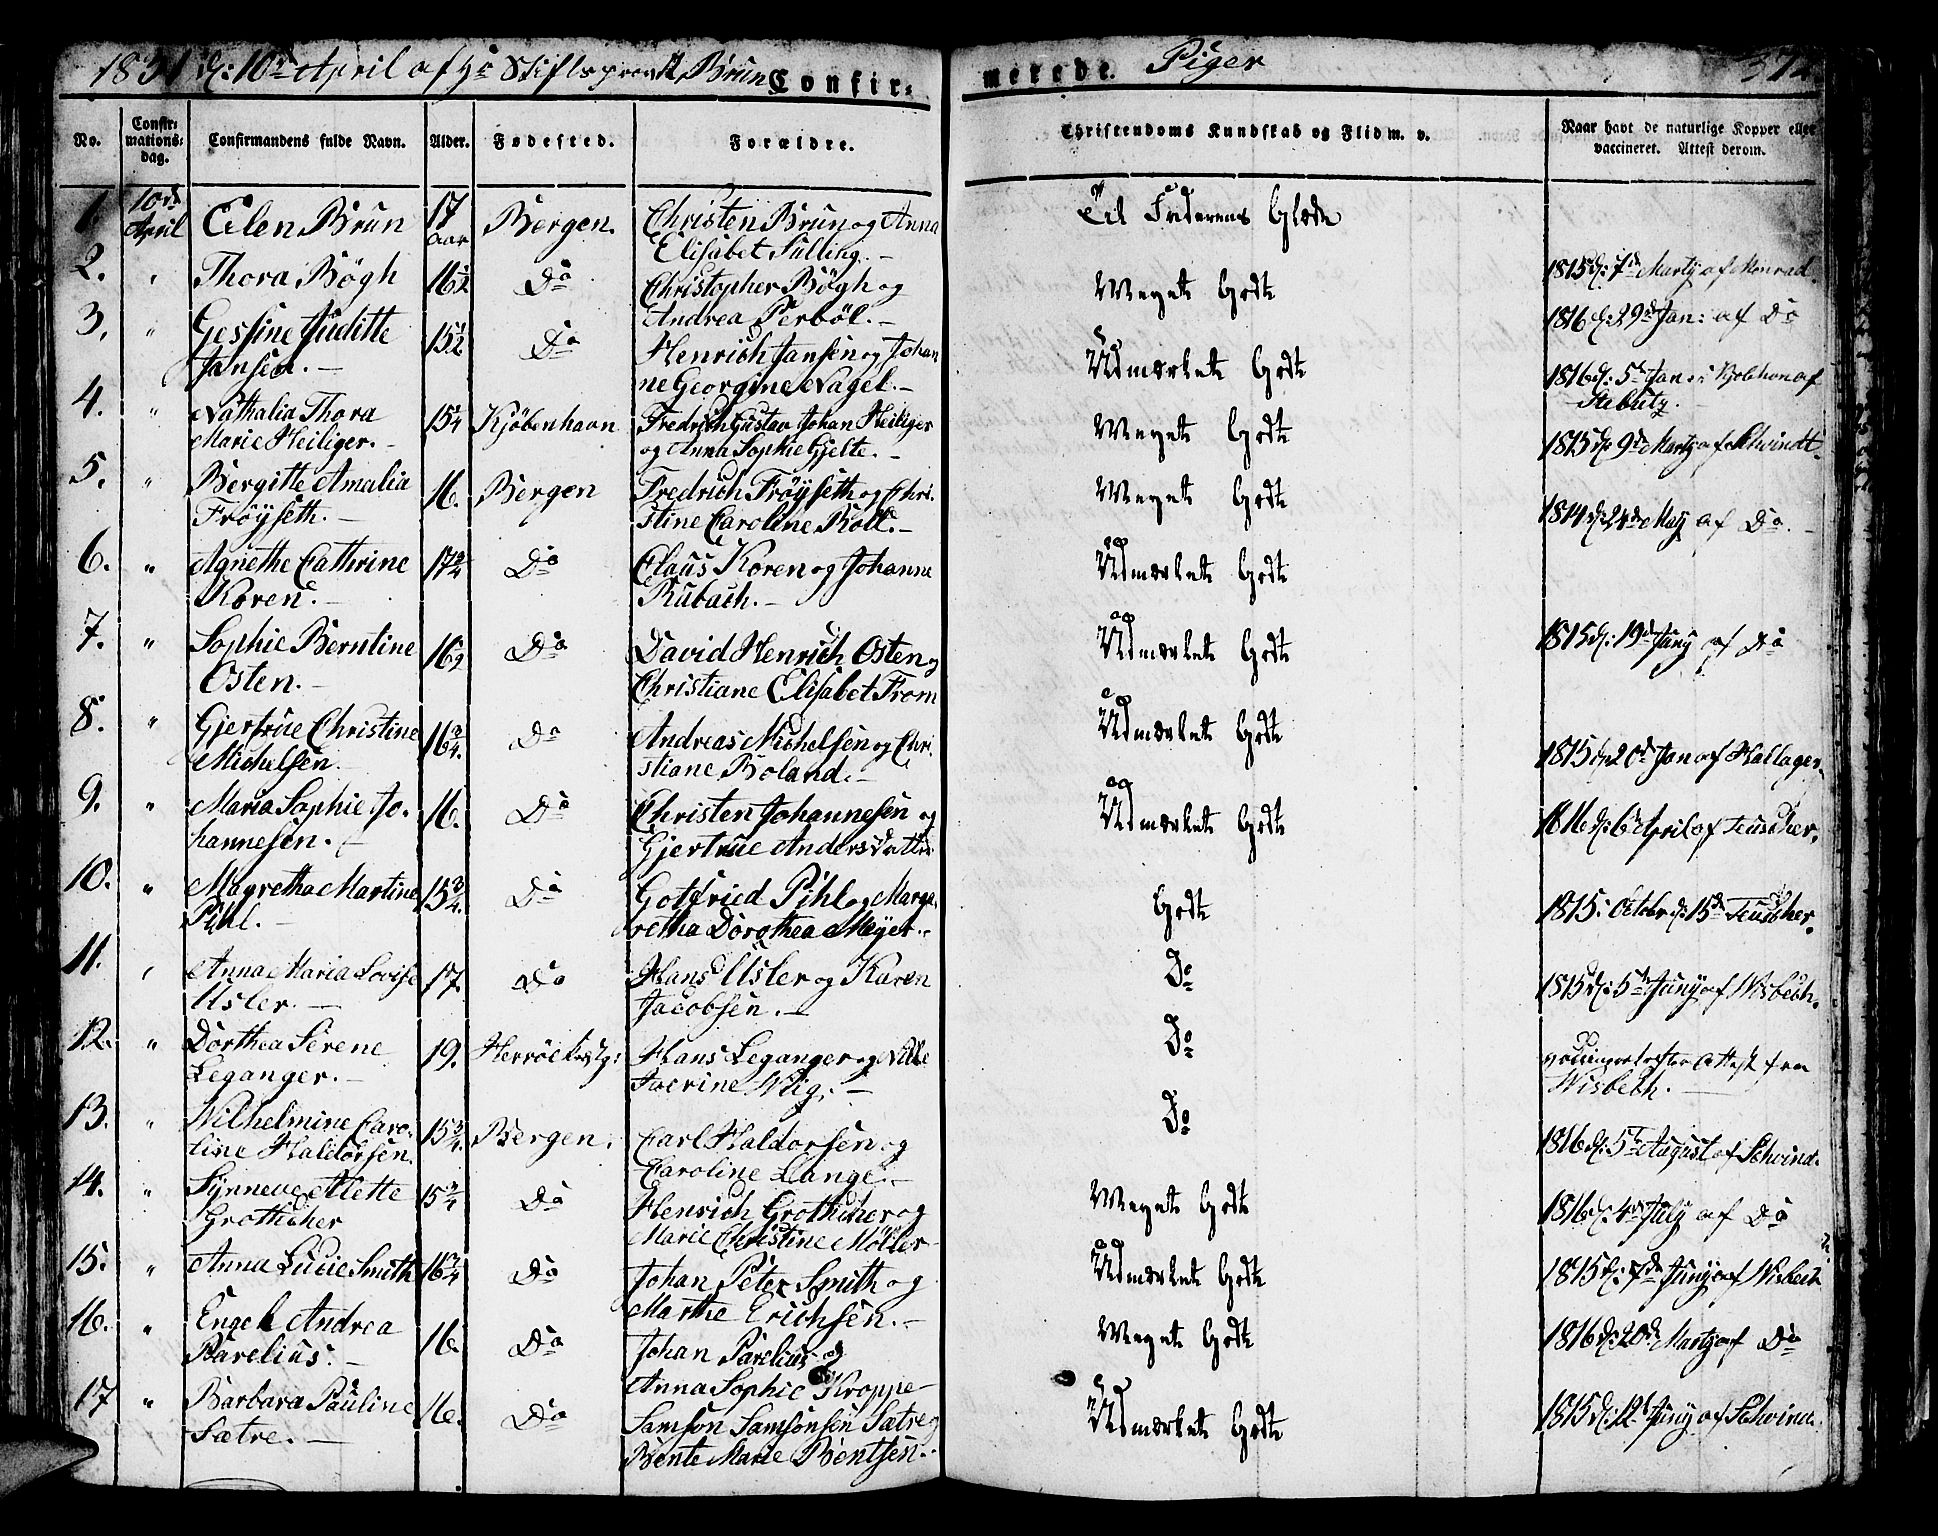 1831 d: 10de April af Hr Stiftsprovst Brun Confir=
merede. Piger
No.
Confir=
mations=
dag.
Confirmandens fulde Navn.
Alder.
Fødested.
Forældre.
Christendoms Kundskab og Flid m. v.
Naar havt de naturlige Kopper eller
vaccineret. Attest derom.
1. 10de April Eilen Brun 17 aar Bergen. Christen Brun og Anna
Elisabet Sulling.
Til Frederens Glæde
2. " Thora Bøgh 16½ Do Christopher Bøgh og
Andrea Perböl.
Meget Godt 1815 d: 7de Marty af Monrad
3. " Gessine Juditte
Jansen. 15½ Do Henrich Jansen og Johan
ne Georgine Nagel.
Udmærket Godt 1816 d: 29de Jan: af Do
4. " Nathalia Thora
Marie Heiliger. 15¼ Kjøbenhavn Fredrich Gustav Johan Heiliger
og Anna Sophie Gjelte.
Meget Godt 1816 d: 5te Jan: i Kjobhon af
Stabutz.
5. " Bergitte Amalia
Frøÿseth. 16. Bergen Fredrich Frøÿseth og Chri.
stine Caroline Roll.
Meget Godt 1815 d: 9de Marty af Schwindt.
6. " Agnethe Cathrine
Koren. 17¾ Do Claus Koren og Johanne
Rubach.
Udmærket Godt 1814 d: 24de May af Do.
7. " Sophie Berntine
Osten. 16½ Do David Henrich Osten og
Christiane Elisabet From
Udmærket Godt 1815 d: 19de Juny af Do
8. " Gjertrue Christine
Michelsen. 16¾. Do Andreas Michelsen og Chri.
stiane Boland.
Udmærket Godt 1815 d: 20de Jan af Hallager.
9. " Maria Sophie Jo.
hannesen. 16. Do Christen Johannesen og
Gjertrue Andersdatter
Udmærket Godt 1816 d: 6te April af Teuscher.
10. " Magretha Martine
Pihl. 15¾. Do Gotfried Pihl og Marga.
retha Dorothea Meÿer.
Godt 1815. Octobr d: 15de Teuscher.
11. " Anna Maria Lovise
Usler. 17. Do Hans Usler og Karen
Jacobsen.
Do 1815 d: 5te Juny af Wisbech.
12. " Dorthea Serene
Leganger. 19. Herröe Hans Leganger og Nille
Jacrine Wiig.
Do Attest fra
Wisbech.
13. " Wilhelmine Caro-
line Haldorsen. 15¾. Bergen. Carl Haldorsen og
Caroline Lange.
Do 1816 d: 5te August af Schwind.
14. " Synneve Alette
Grottscher 15¾ Do Henrich Grottscher og
Marie Christine Møller
Meget Godt 1816 d: 4de July af Do
15. " Anna Lucie Smith 16¾ Do Johan Peter Smith og
Marthe Erichsen.
Udmærket Godt 1815 d: 7de Juny af Wisbech
16. " Engel Andrea
Parelius. 16. Do Johan Parelius og
Anna Sophie Kroppe
Meget Godt 1816 d: 20de Marty af Do
17 " Barbara Pauline
Sætre. 16. Do Samson Samsonsen Sætre og
Bente Marie Bentsen.
Udmærket Godt 1815 d: 12te Juny af Schwind.